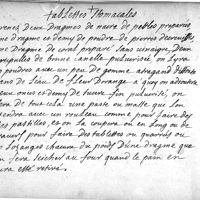 tablettes Stomacales
prenez deux dragmes de nacre de perles preparée
une dragme et demy de poudre de pierres decrevisses
une dragme de coral preparé sans vinaigre, deux
scrupules de bonne canelle pulverisée, on lyra
ces poudres avec un peu de gomme adragant
dans de l'eau de fleur Dorange a quoy on adioutera
onces et demy de sucre fin pulverisé, on
fera de tout cela une paste ou masse que lon
etendra avec un rouleau comme pour faire des
pastilles, et on la coupera en long et de
travers pour faire des tablettes ou quarrés ou
Losanges chacun du poids Dune dragme que
on fera seicher au four quand le pain en
aura esté retiré.